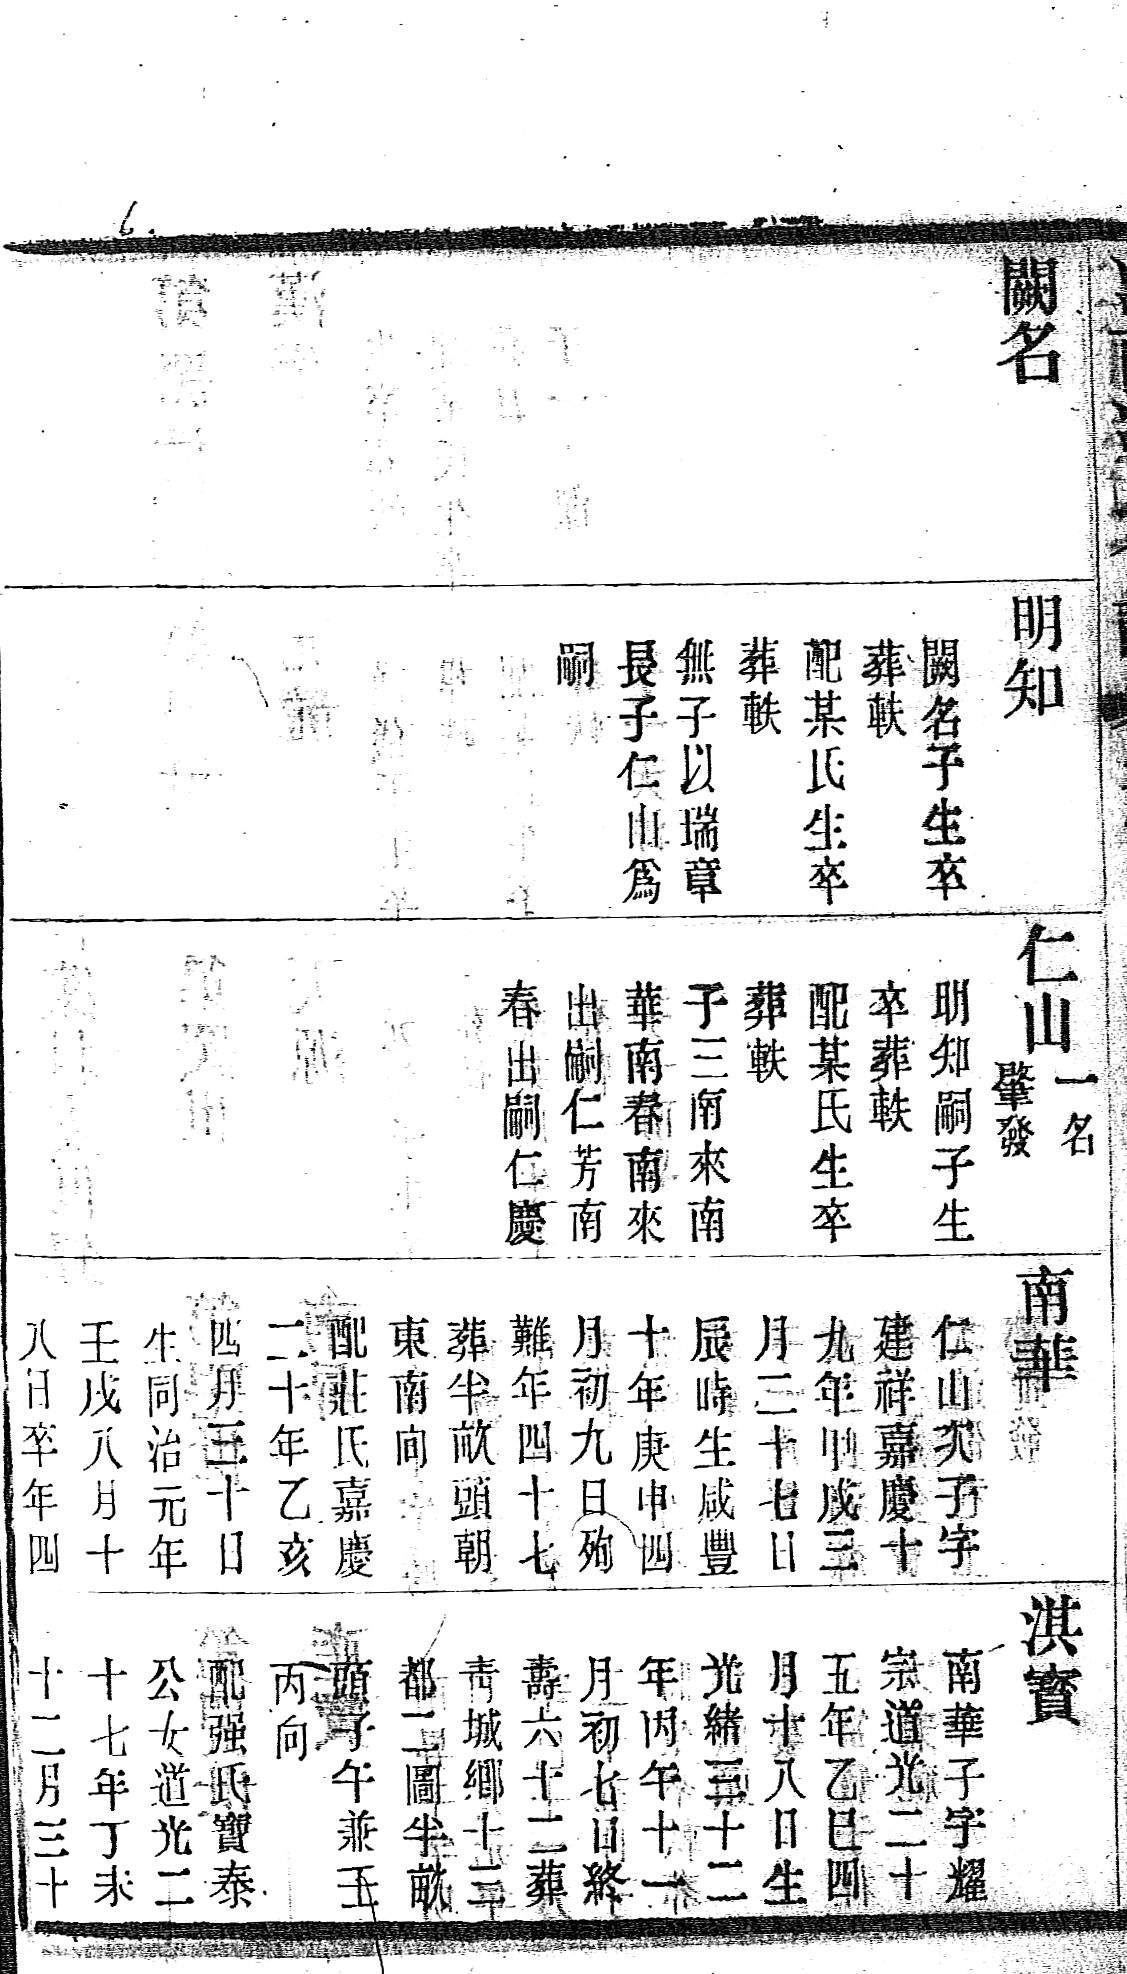 闕名
明知
闕名子生卒
葬軼
配某氏生卒
葬軼
無子以瑞章
長子仁山爲
嗣
仁山
一名
肇發
明知嗣子生
卒葬軼
配某氏生卒
葬軼
子三南來南
華南春南來
出嗣仁芳南
春出嗣仁慶
南華
仁山次子字
建祥嘉慶十
九年甲戌三
月二十七日
辰時生咸豐
十年庚申四
月初九日殉
難年四十七
葬半畝頭朝
東南向
配莊氏嘉慶
二十年乙亥
四月三十日
生同治元年
壬戌八月十
八日卒年四
淇寶
南華子字耀
宗道光二十
五年乙巳四
月十八日生
光緒三十二
年丙午十一
月初七日終
壽六十二葬
靑城鄉十三
都二圖半畝
頭子午兼壬
丙向
配强氏寶泰
公女道光二
十七年丁未
十二月三十
6.